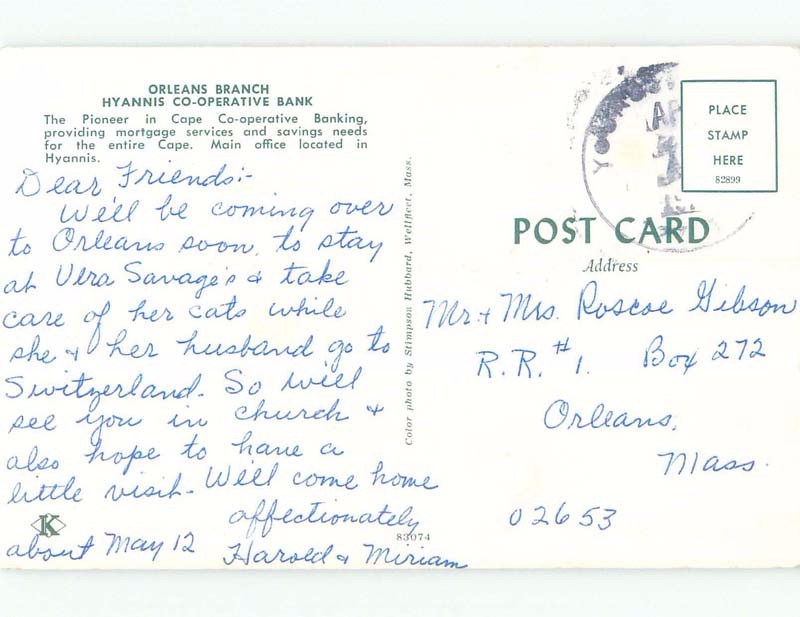 ORLEANS BRANCH
HYANNIS CO-OPERATIVE BANK
The Pioneer in Cape Co-operative Banking,
providing mortgage services and savings needs
for the entire Cape. Main office located in
Hyannis.
Dear Friends:-
We'll be coming over
to Orleans soon, to stay
at Vera Savage's & take
care of her cats while
she & her husband go to
Switzerland. So will
see you in church &
also hope to have a
little visit. Will come home
about May 12
affectionately
Harold & Miriam
K
83074
Color photo by Stimpson Hubbard, Wellfleet, Mass.
PLACE
STAMP
HERE
82899
POST CARD
Address
Mr. & Mrs. Roscoe Gibson
R.R. #1. Box 272
Orleans,
Mass.
02653